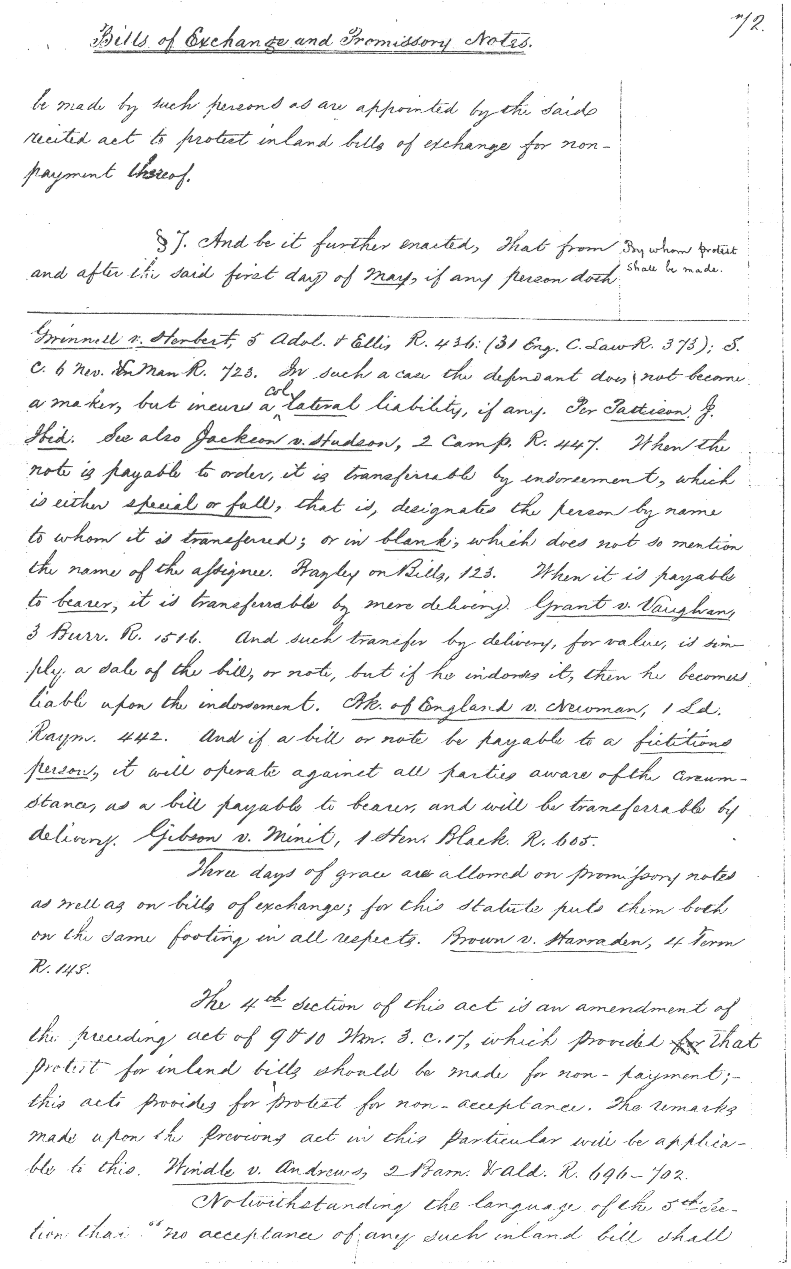 72.
Bills of Exchange and Promissory Notes.
be made by such persons as are appointed by the said
recited act to protest inland bills of exchange for non-
payment thereof.
§ 7. And be it further enacted, That from
and after the said first day of May, if any person doth
By whom protest
shall be made.
Gwinnell v. Herbert, 5 Adol. & Ellis R. 436: (31 Eng. C. Law R. 373); S.
C. 6 Nev. & Man R. 723. In such a case the defendant does not become
a maker, but incurs a collateral liability, if any. Per Patteson J.
Ibid. See also Jackson v. Hudson, 2 Camp. R. 447. When the
note is payable to order, it is transferrable by endorsement, which
is either special or full, that is, designates the person by name
to whom it is transferred; or in blank, which does not so mention
the name of the assignee. Bayley on Bills, 123. When it is payable
to bearer, it is transferrable by mere delivery. Grant v. Vaughan,
3 Burr. R. 1516. And such transfer by delivery, for value, is sim-
ply a sale of the bill, or note, but if he indorses it, then he becomes
liable upon the indorsement. Bk. of England v. Newman, 1 Ld.
Raym. 442. And if a bill or note be payable to a fictitious
person, it will operate against all parties aware of the circum-
stance, as a bill payable to bearer, and will be transferrable by
delivery. Gibson v. Minit, 1 Hen. Black. R. 605.
Three days of grace are allowed on promissory notes
as well as on bills of exchange; for this statute puts them both
on the same footing in all respects. Brown v. Harraden, 4 Term
R. 148.
The 4th section of this act is an amendment of
the preceding act of 9 & 10 Wm. 3. c. 17, which provided for that
protest for inland bills should be made for non-payment;-
this act provides for protest for non-acceptance. The remarks
made upon the previous act in this particular will be applica-
ble to this. Windle v. Andrews, 2 Barn. & Ald. R. 696-702.
Notwithstanding the language of the 5th sec-
tion that "no acceptance of any such inland bill shall